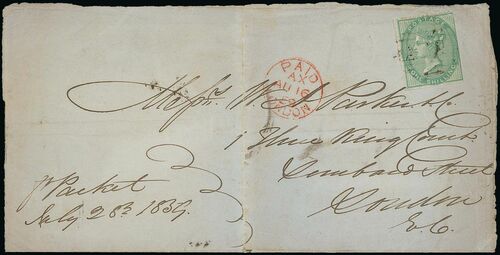 POSTAGE
ONE SHILLING
PAID
AX
AU 16
59
LONDON
Messrs. W. Parker & Co.
1 Three King Court
Lombard Street
London
E.C.
pr Packet
July 28th 1859.